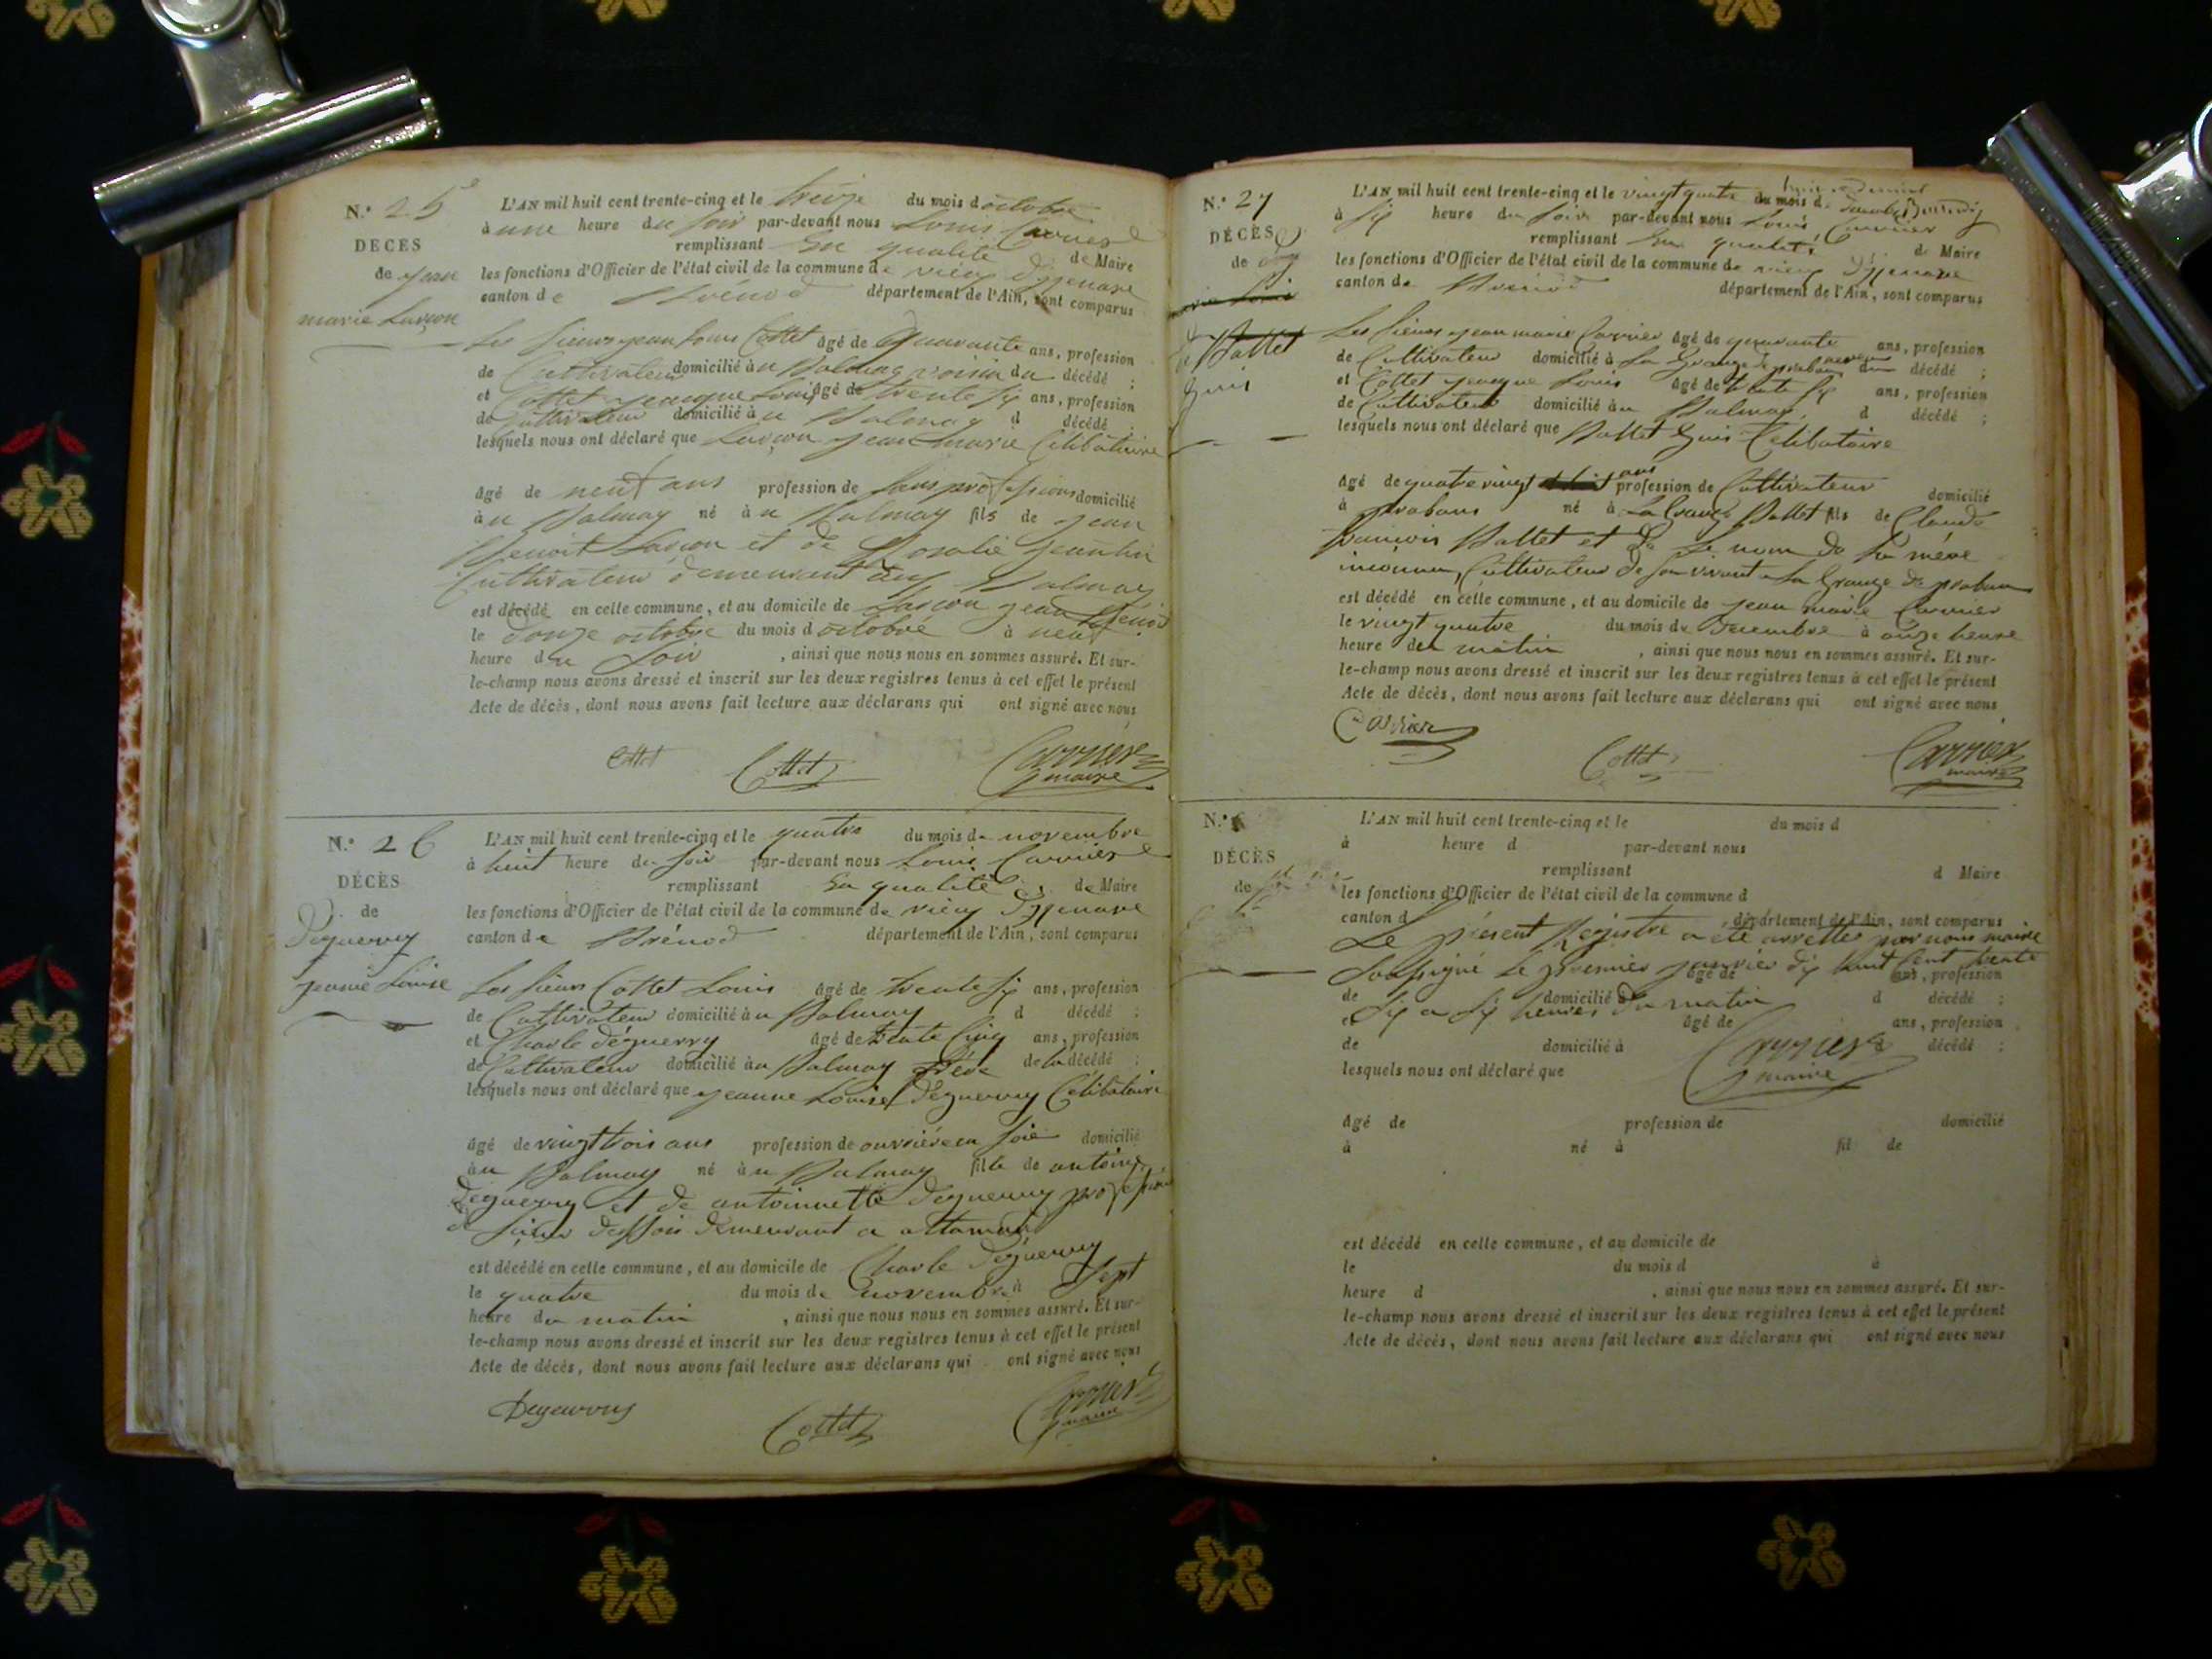 N.° 25
DECÈS
de Jean
marie Lançon
L'AN mil huit cent trente-cinq et le treize du mois d octobre
à une heure du soir par-devant nous Louis Carrier
remplissant En qualité de Maire
les fonctions d'Officier de l'état civil de la commune de vieu Dizenave
canton de Brénod département de l'Ain, sont comparus
Les sieurs jean Louis Cottet âgé de Quarante ans, profession
de Cultivateur domicilié àu Balmay voisin du décédé ;
et Cottet jacque Louis âgé de trente six ans, profession
de Cultivateur domicilié àu Balmay d décédé ;
lesquels nous ont déclaré que Lançon jean marie Célibataire
âgé de neuf ans profession de sans professions domicilié
àu Balmay né àu Balmay fils de jean
Benoit Lançon et de Rosalie
Cultivateur demeurant Balmay
est décédé en celle commune, et au domicile de Lançon jean Bénoit
le Donze octobre du mois d octobre à neuf
heure du soir , ainsi que nous nous en sommes assuré. Et sur-
le-champ nous avons dressé et inscrit sur les deux registres tenus à cet effet le présent
Acte de décès, dont nous avons fait lecture aux déclarans qui ont signé avec nous
Cottet Cottet Carrier
maire
N.° 26
DÉCÈS
de
Deguerry
jeanne Louise
L'AN mil huit cent trente-cinq et le quatre du mois de novembre
à huit heure du soir par-devant nous Louis Carrier
remplissant En qualité de Maire
les fonctions d'Officier de l'état civil de la commune de vieu Dizenave
canton de Brénod département de l'Ain, sont comparus
Les sieurs Cottet Louis âgé de trente six ans, profession
de Cultivateur domicilié àu Balmay d décédé ;
et Charle déguerry âgé de trente Cinq ans, profession
de Cultivateur domicilié àu Balmay frère de la décédé ;
lesquels nous ont déclaré que jeanne Louise Déguerry Célibataire
âgé de vingt trois ans profession de ouvrière en soie domicilié
àu Balmay né àu Balmay fille de antoine
Deguerry et de antoinette Deguerry profession
demeurant a
est décédé en celle commune, et au domicile de Charle Déguerry
le quatre du mois de novembre à Sept
heure du matin , ainsi que nous nous en sommes assuré. Et sur-
le-champ nous avons dressé et inscrit sur les deux registres tenus à cet effet le présent
Acte de décès, dont nous avons fait lecture aux déclarans qui ont signé avec nous
Deguerry Cottet Carrier
maire
N.° 27
DÉCÈS
de
Ballet
Guis
L'AN mil huit cent trente-cinq et le vingt quatre du mois d
à six heure du soir par-devant nous Louis Carrier
remplissant En qualité de Maire
les fonctions d'Officier de l'état civil de la commune de vieu Dizenave
canton de Brénod département de l'Ain, sont comparus
Les sieurs jean marie Carrier âgé de quarante ans, profession
de Cultivateur domicilié à La Grange de prabans du décédé ;
et Cottet jacque Louis âgé de trente six ans, profession
de Cultivateur domicilié àu Balmay d décédé ;
lesquels nous ont déclaré que Ballet Guis Célibataire
âgé de quatre vingt ans profession de Cultivateur domicilié
à prabans né à La Grange Ballet fils de Claude
francois Ballet et de Le nom de sa mère
inconnu, Cultivateur de son vivant a La Grange de prabans
est décédé en celle commune, et au domicile de jean marie Carrier
le vingt quatre du mois de Décembre à onze heure
heure du matin , ainsi que nous nous en sommes assuré. Et sur-
le-champ nous avons dressé et inscrit sur les deux registres tenus à cet effet le présent
Acte de décès, dont nous avons fait lecture aux déclarans qui ont signé avec nous
Carrier Cottet Carrier
maire
N.°
DÉCÈS
de
L'AN mil huit cent trente-cinq et le du mois d
à heure d par-devant nous
remplissant d Maire
les fonctions d'Officier de l'état civil de la commune d
canton d département de l'Ain, sont comparus
Le présent Registre a été arretté par nous maire
soussigné le premier janvier dix huit cent trente
âgé de ans, profession
de domicilié à d décédé ;
six a six heures du matin
et âgé de ans, profession
de domicilié à décédé ;
Carrier
maire
lesquels nous ont déclaré que
âgé de profession de domicilié
à né à fil de
est décédé en celle commune, et au domicile de
le du mois d à
heure d , ainsi que nous nous en sommes assuré. Et sur-
le-champ nous avons dressé et inscrit sur les deux registres tenus à cet effet le présent
Acte de décès, dont nous avons fait lecture aux déclarans qui ont signé avec nous